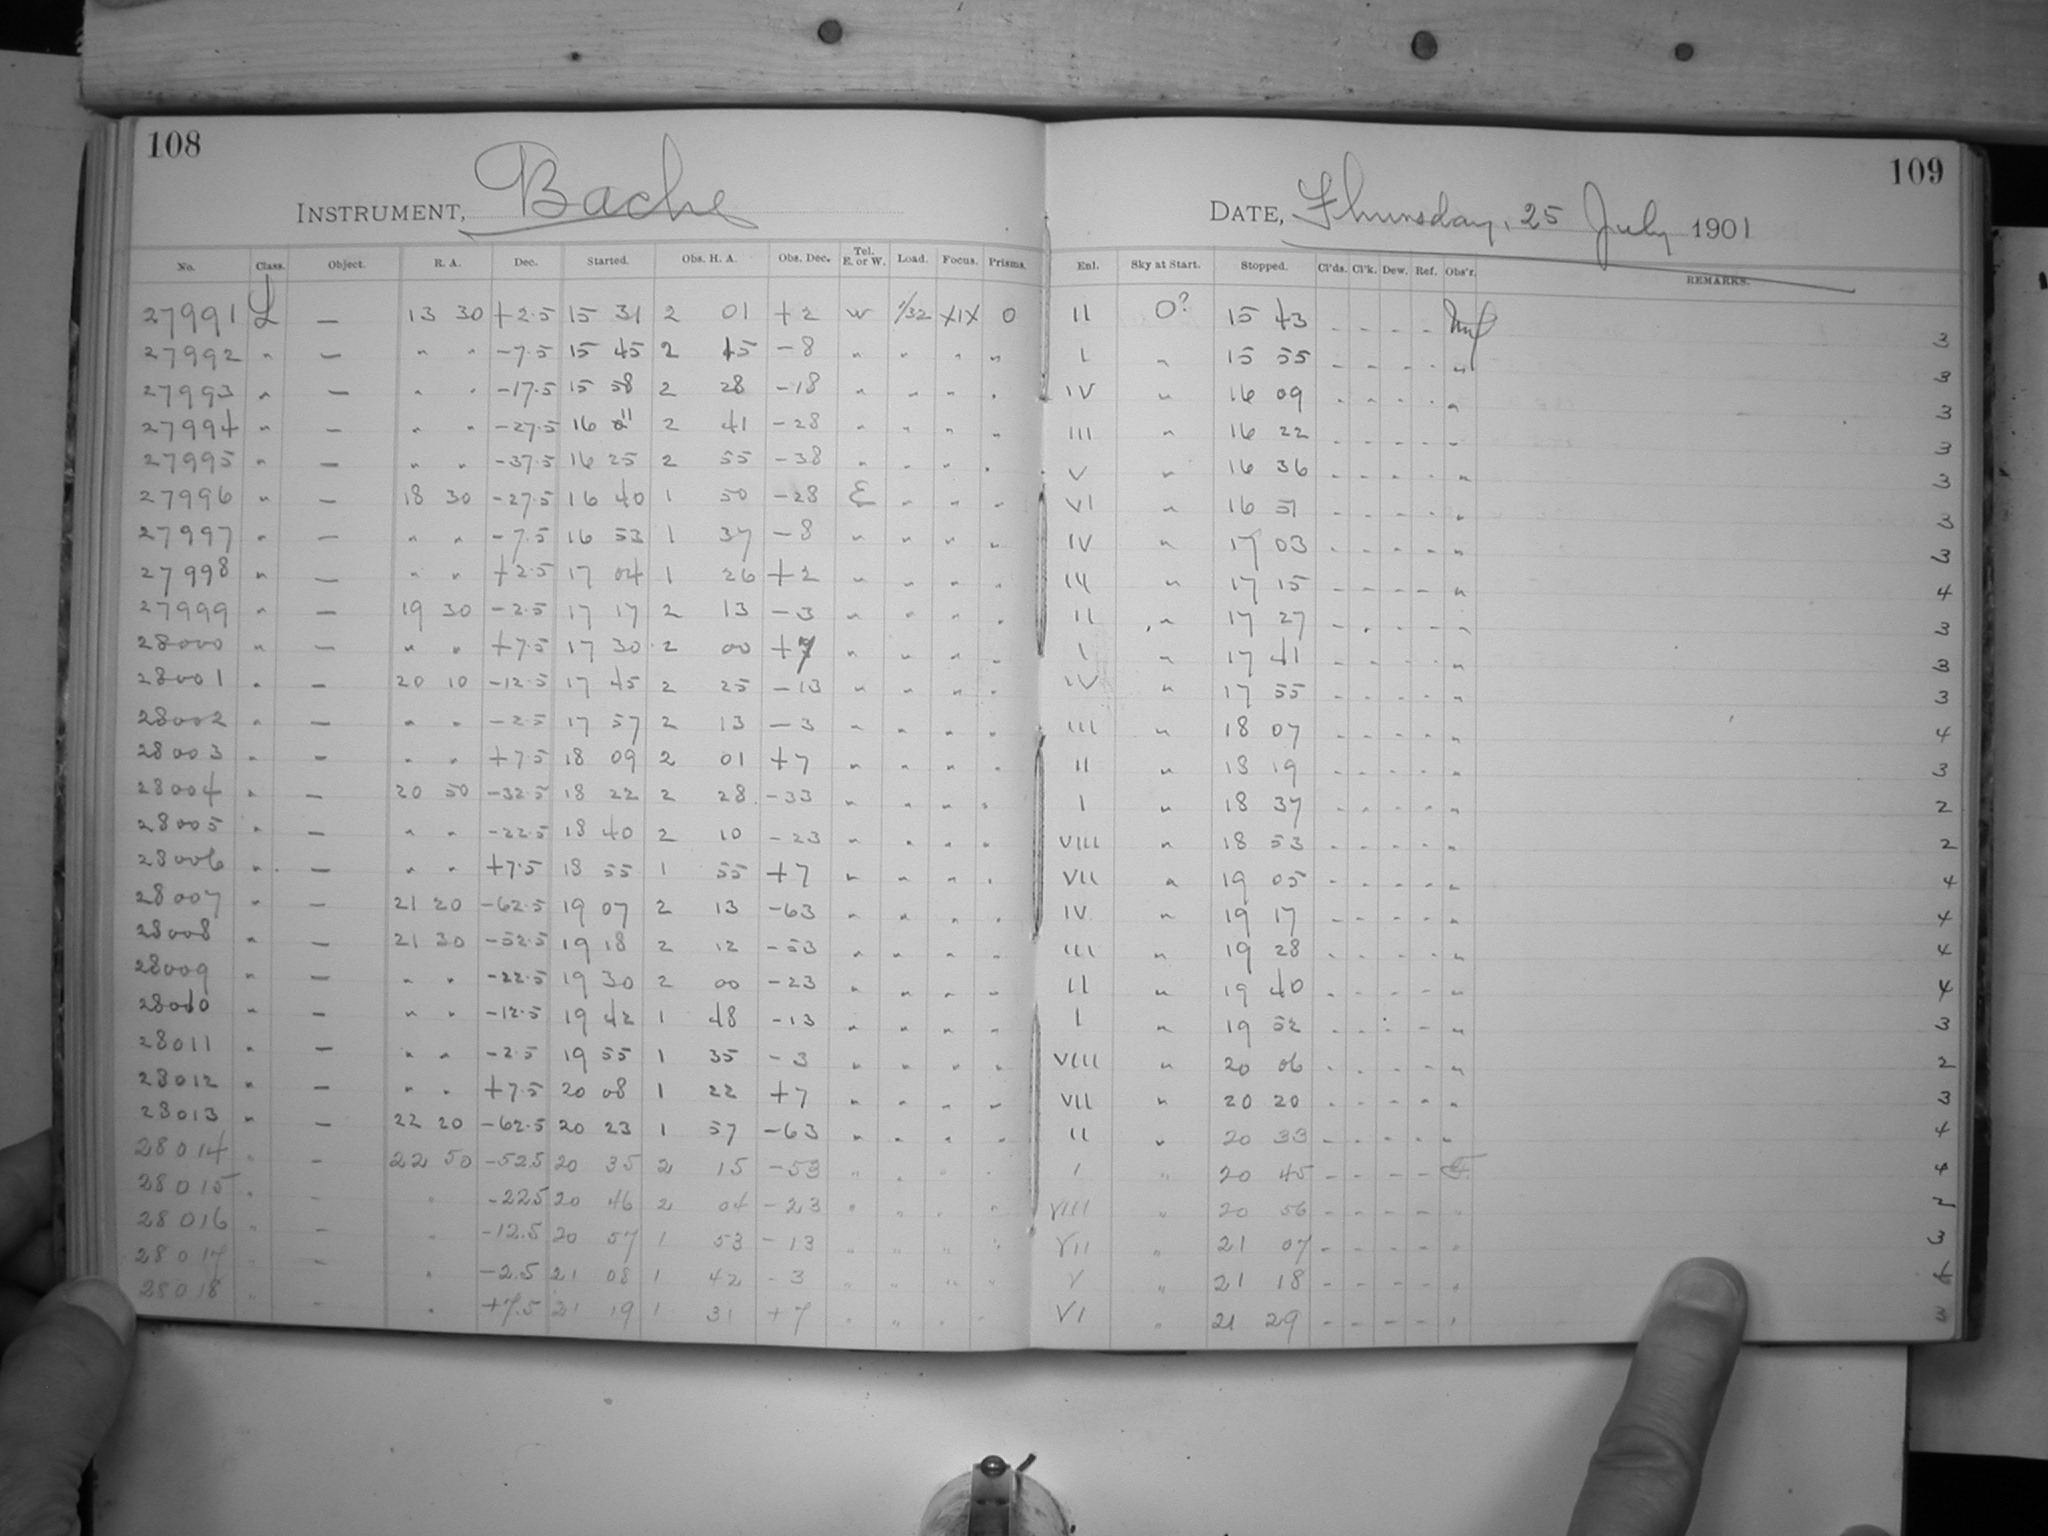 108
109
INSTRUMENT, Bache
DATE, Thursday, 25 July 1901
No. Class. Object. R. A. Dec. Started. Obs. H. A. Obs. Dec. Tel. E. or W. Load. Focus. Prisms. Enl. Sky at Start. Stopped. Cl'ds. Cl'k. Dew. Ref. Obs'r. REMARKS.
27991 L — 13 30 +2.5 15 31 2 01 +2 W 1/32 XIX 0 II 0? 15 43 - - - - 3
27992 " — " " -7.5 15 45 2 15 -8 " " " " I " 15 55 - - - - " 3
27993 " — " " -17.5 15 58 2 28 -18 " " " " IV " 16 09 - - - - " 3
27994 " — " " -27.5 16 11 2 41 -28 " " " " III " 16 22 - - - - " 3
27995 " — " " -37.5 16 25 2 55 -38 " " " " V " 16 36 - - - - " 3
27996 " — 18 30 -27.5 16 40 1 50 -28 E " " " VI " 16 51 - - - - " 3
27997 " — " " -7.5 16 53 1 37 -8 " " " " IV " 17 03 - - - - " 3
27998 " — " " +2.5 17 04 1 26 +2 " " " " III " 17 15 - - - - " 4
27999 " — 19 30 -2.5 17 17 2 13 -3 " " " " II " 17 27 - - - - " 3
28000 " — " " +7.5 17 30 2 00 +7 " " " " I " 17 41 - - - - " 3
28001 " — 20 10 -12.5 17 45 2 25 -13 " " " " IV " 17 55 - - - - " 3
28002 " — " " -2.5 17 57 2 13 -3 " " " " III " 18 07 - - - - " 4
28003 " — " " +7.5 18 09 2 01 +7 " " " " II " 18 19 - - - - " 3
28004 " — 20 50 -32.5 18 22 2 28 -33 " " " " I " 18 37 - - - - " 2
28005 " — " " -22.5 18 40 2 10 -23 " " " " VIII " 18 53 - - - - " 2
28006 " — " " +7.5 18 55 1 55 +7 " " " " VII " 19 05 - - - - " 4
28007 " — 21 20 -62.5 19 07 2 13 -63 " " " " IV " 19 17 - - - - " 4
28008 " — 21 30 -52.5 19 18 2 12 -53 " " " " III " 19 28 - - - - " 4
28009 " — " " -22.5 19 30 2 00 -23 " " " " II " 19 40 - - - - " 4
28010 " — " " -12.5 19 42 1 48 -13 " " " " I " 19 52 - - - - " 3
28011 " — " " -2.5 19 55 1 35 -3 " " " " VIII " 20 06 - - - - " 2
28012 " — " " +7.5 20 08 1 22 +7 " " " " VII " 20 20 - - - - " 3
28013 " — 22 20 -62.5 20 23 1 57 -63 " " " " II " 20 33 - - - - " 4
28014 " — 22 50 -52.5 20 35 2 15 -53 " " " " I " 20 45 - - - - 4
28015 " - " -22.5 20 46 2 04 -23 " " " " VIII " 20 56 - - - - "
28016 " - " -12.5 20 57 1 53 -13 " " " " VII " 21 07 - - - - " 3
28017 " - " -2.5 21 08 1 42 -3 " " " " V " 21 18 - - - - "
28018 " - " +7.5 21 19 1 31 +7 " " " " VI " 21 29 - - - - " 3